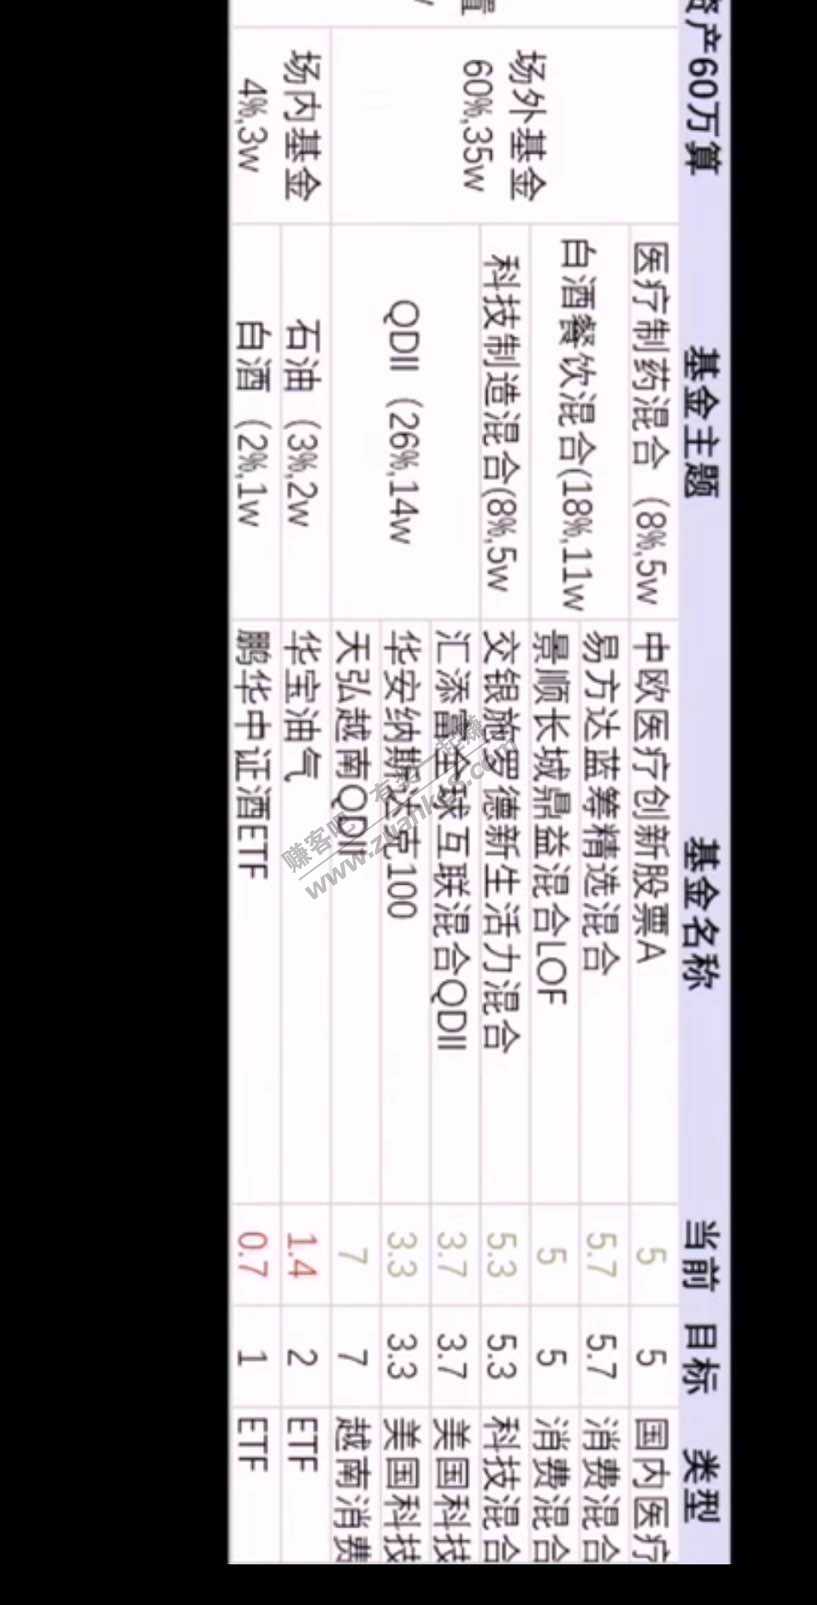 产60万算 基金主题 基金名称 当前 目标 类型
场外基金
60%,35w
医疗制药混合 (8%,5w 中欧医疗创新股票A 5 5 国内医疗
白酒餐饮混合(18%,11w 易方达蓝筹精选混合 5.7 5.7 消费混合
景顺长城鼎益混合LOF 5 5 消费混合
科技制造混合(8%,5w 交银施罗德新生活力混合 5.3 5.3 科技混合
QDII (26%,14w 汇添富全球互联混合QDII 3.7 3.7 美国科技
华安纳斯达克100 3.3 3.3 美国科技
天弘越南QDII 7 7 越南消费
场内基金
4%,3w
石油 (3%,2w 华宝油气 1.4 2 ETF
白酒 (2%,1w 鹏华中证酒ETF 0.7 1 ETF
赚客吧,有奖一起赚
www.zuanke8.com